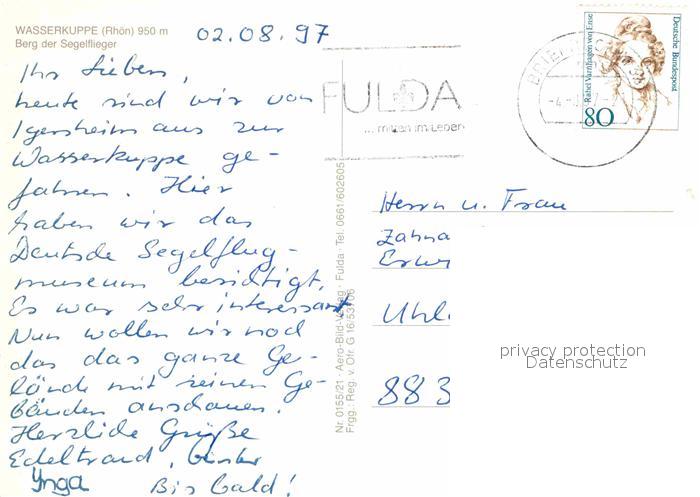 WASSERKUPPE (Rhön) 950 m
Berg der Segelflieger
02.08.97
Ihr Lieben,
heute sind wir von
Igersheim aus zur
Wasserkuppe ge-
fahren. Hier
haben wir das
Deutsche Segelflug-
museum besichtigt.
Es war sehr interessant
Nun wollen wir noch
das das ganze Ge-
lände mit seinen Ge-
bäuden anschauen.
Herzliche Grüße
Edeltraud, Günter
Ynga
Bis bald!
Nr. 0155/21 · Aero-Bild-Verlag · Fulda · Tel. 0661/602605
Frgg.: Reg. v. Ofr. G 16/53706
FULDA
... mitten im Leben
BRIEFZENTRUM
Rahel Varnhagen von Ense
Deutsche Bundespost
80
Herrn u. Frau
Zahna
Erw
Uhl.
883
privacy protection
Datenschutz